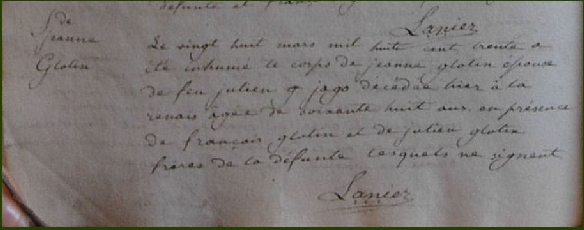 défunte et
Laniez
S. de
Jeanne
Glotin
Le vingt huit mars mil huit cent trente a
été inhumé le corps de jeanne glotin épouse
de feu julien jago décédée hier à la
renais âgée de soixante huit ans en présence
de françois glotin et de julien glotin
frères de la défunte lesquels ne signent
Laniez